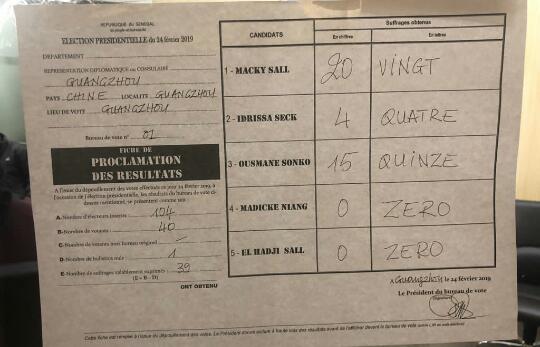 REPUBLIQUE DU SENEGAL
ELECTION PRESIDENTIELLE du 24 février 2019
DEPARTEMENT
REPRESENTATION DIPLOMATIQUE OU CONSULAIRE
GUANGZHOU
PAYS CHINE LOCALITE GUANGZHOU
LIEU DE VOTE GUANGZHOU
Bureau de vote n° 01
FICHE DE
PROCLAMATION
DES RESULTATS
A l'issue du dépouillement des votes effectués ce jour 24 février 2019, à
l'occasion de l'élection présidentielle, les résultats du bureau de vote ci-
dessus mentionné, se présentent comme suit
A-Nombre d'électeurs inscrits 104
B-Nombre de votants 40
C-Nombre de votants hors bureau originel
D-Nombre de bulletins nuls 1
E-Nombre de suffrages valablement exprimés 39
(E = B - D)
ONT OBTENU
CANDIDATS
Suffrages obtenus
En chiffres
En lettres
1 - MACKY SALL 20 VINGT
2 - IDRISSA SECK 4 QUATRE
3 - OUSMANE SONKO 15 QUINZE
4 - MADICKE NIANG 0 ZERO
5 - EL HADJI SALL 0 ZERO
A Guangzhou le 24 février 2019
Le Président du bureau de vote
Cette fiche est remplie à l'issue du dépouillement des votes. Le Président donne lecture à haute voix des résultats avant de l'afficher devant le bureau de vote